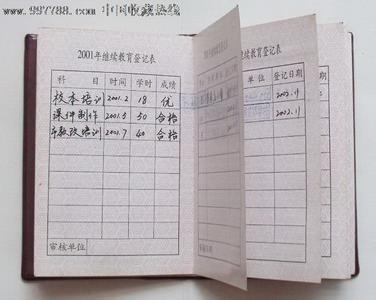 www.997788.com 中国收藏热线
2001年继续教育登记表
科 目 时间 学时 成绩
校本培训 2001.2 18 优
课件制作 2001.5 50 合格
教改培训 2001.7 40 合格
审核单位
续教育登记表
单位 登记日期
2002.11
2002.11